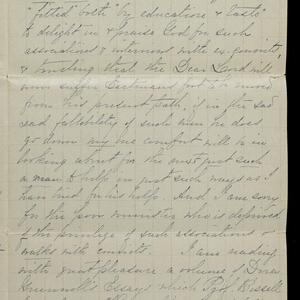 "fitted both" by education & taste
to delight in & praise God for such
associations & interviews with ex-convicts,
& trusting that the Dear Lord will
never suffer Eastman's foot to be moved
from his present path, if in the sad
read fallibility of such men he does
go down my one comfort will be in
looking about for the next just such
a man to help in just such ways as I
have tried for his help. And, I am sorry
for the poor minister who is deprived
of the privilege of such associations &
walks with convicts. I am reading
with great pleasure a volume of Dora
Greenwell's Essays which Prof. Bissell